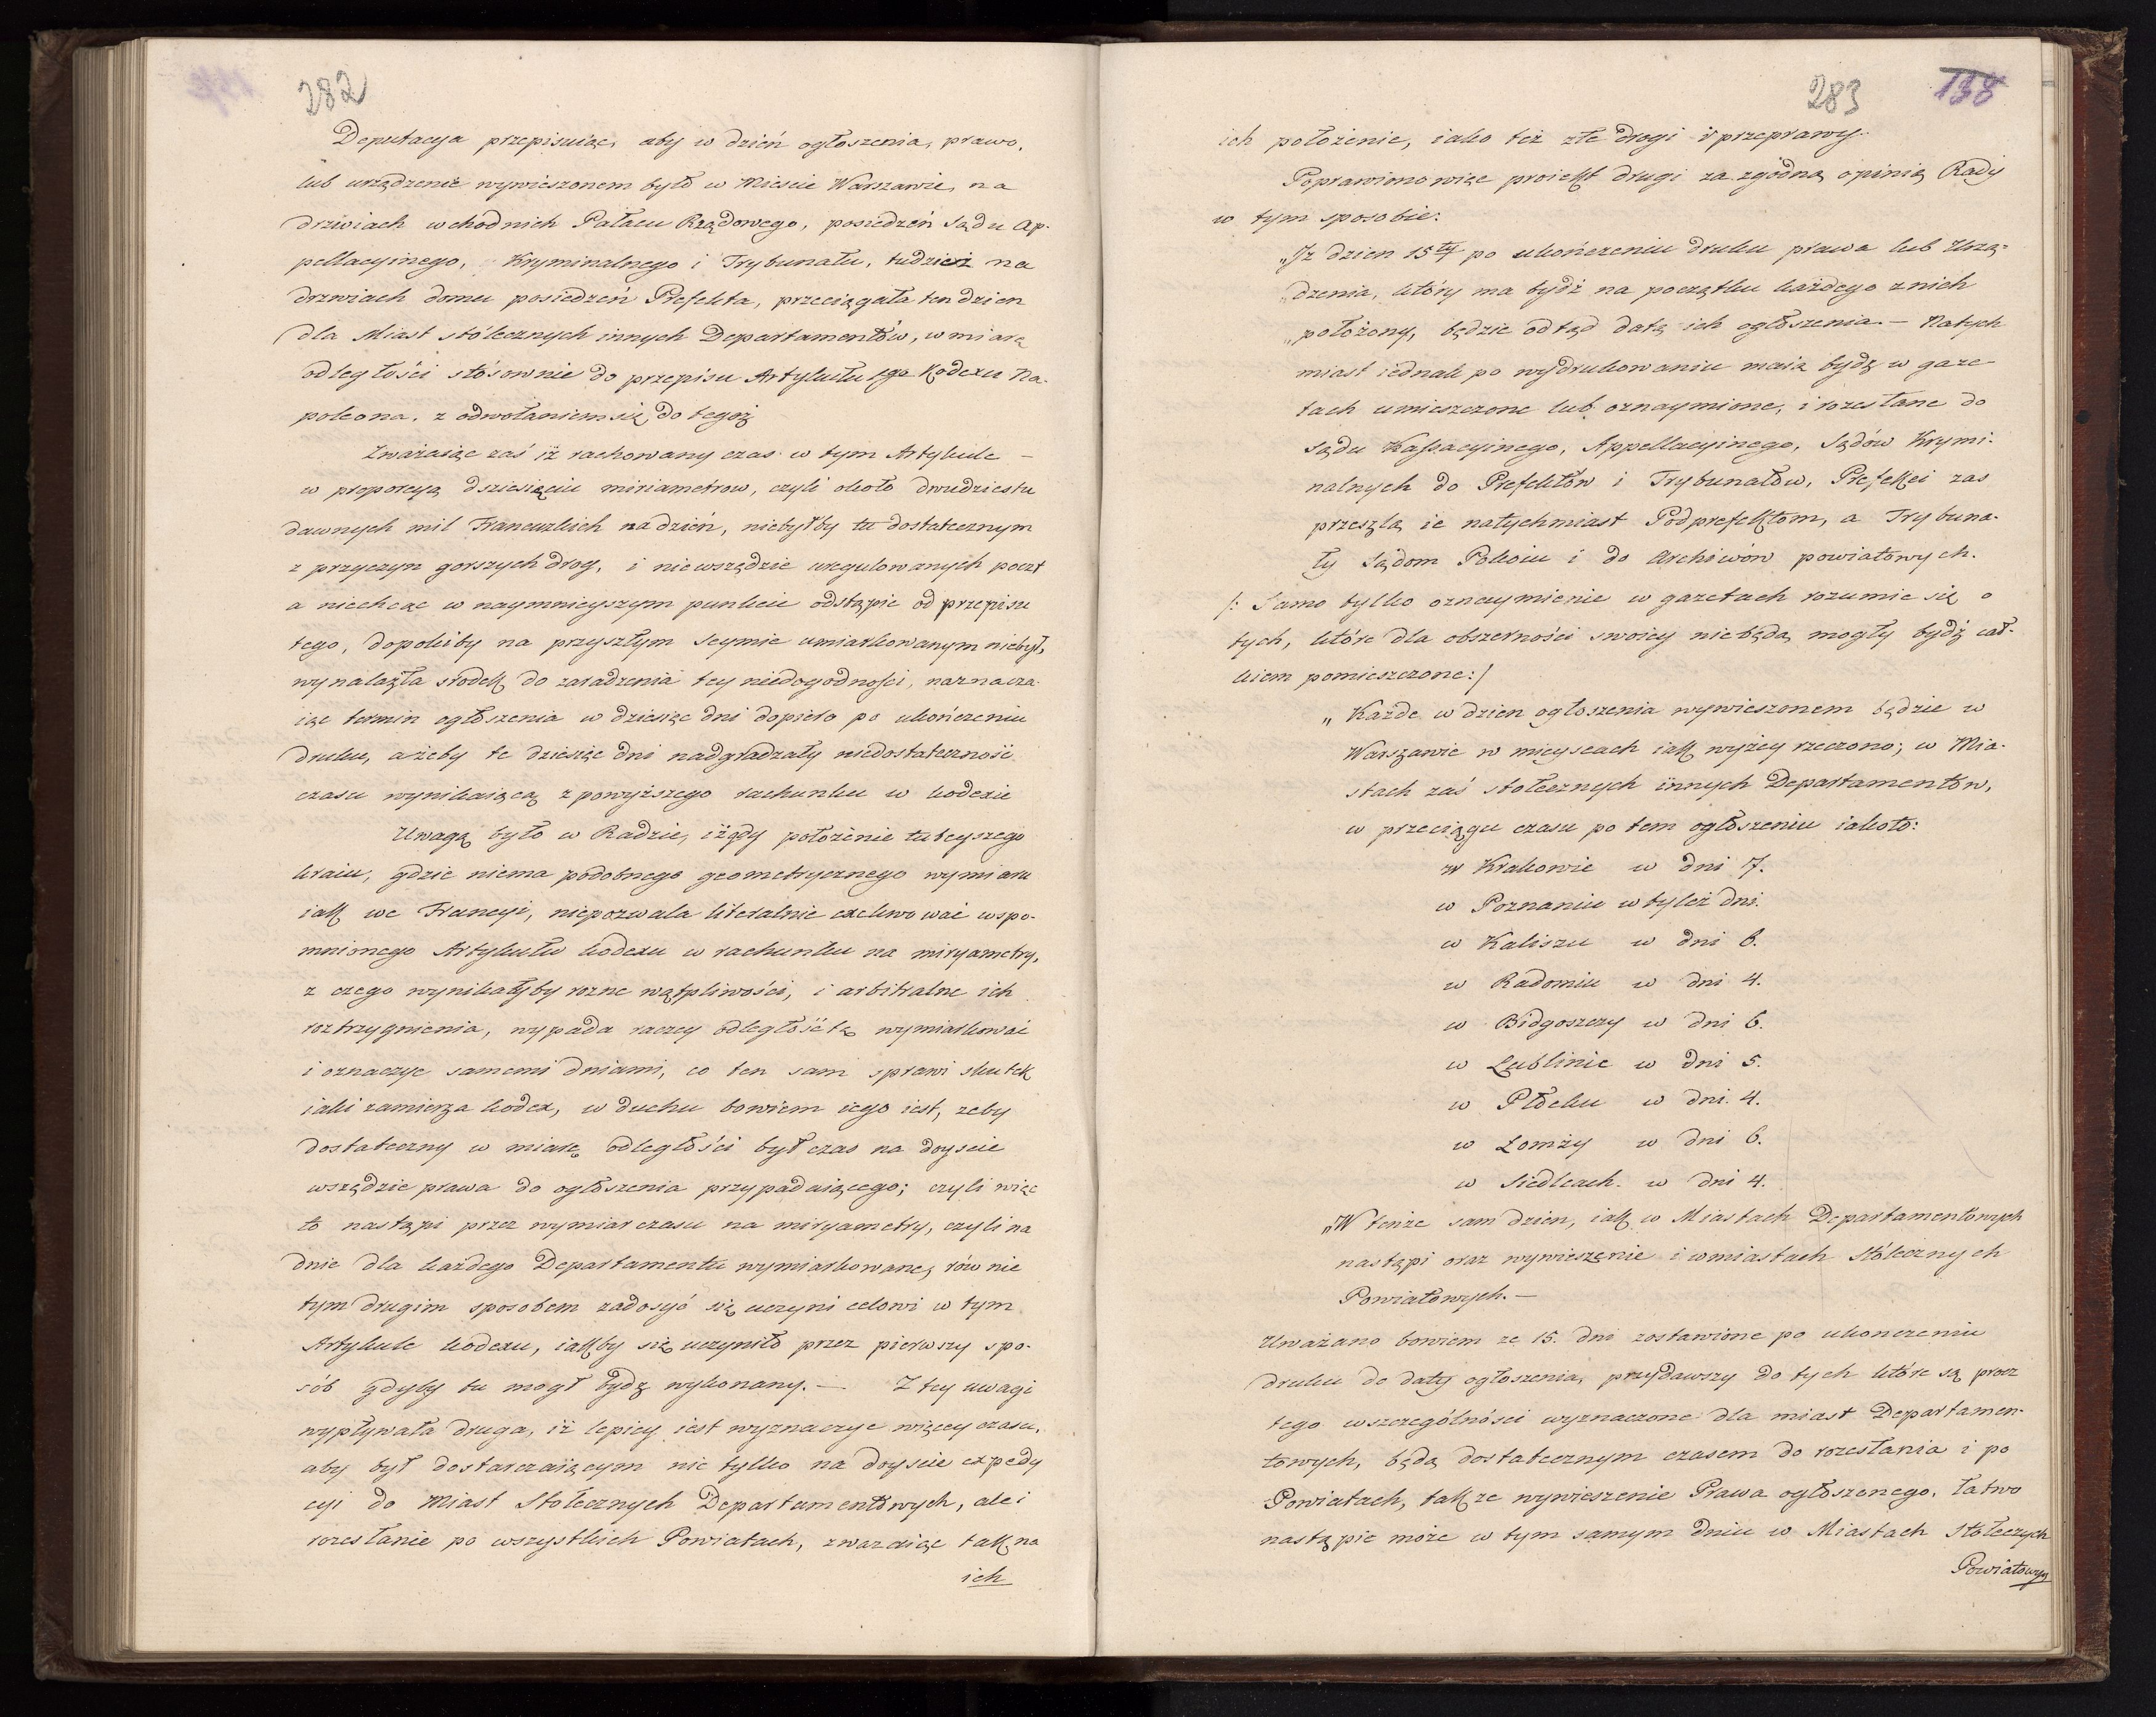 282
Deputacya przepisuiąc, aby w dzień ogłoszenia, prawo,
lub urządzenie wywieszonem było w Mieście Warszawie, na
drzwiach wchodnich Pałacu Rządowego, posiedzeń Sądu Ap-
pellacyinego, Kryminalnego i Trybunału, tudzież na
drzwiach domu posiedzeń Prefekta, przeciągała ten dzien
dla Miast stołecznych innych Departamentów, w miarę
odległości stósownie do przepisu Artykułu 1go Kodexu Na-
poleona, z odwołaniem się do tegoż
Zważaiąc zaś iż rachowany czas w tym Artykule –
w proporcyą dziesięciu miriametrow, czyli około dwudziestu
dawnych mil Francuzkich na dzień, niebyłby tu dostatecznym
z przyczyn gorszych drog, i niewszędzie uregulowanych poczt
a niechcąc w naymnieyszym punkcie odstąpic od przepisu
tego, dopokiby na przyszłym Seymie umiarkowanym niebył,
wynalazła srodek do zaradzenia tey niedogodności, naznacza-
iąc termin ogłoszenia w dziesięc dni dopiero po ukończeniu
druku, ażeby te dziesięc dni nadgradzały niedostateczność
czasu wynikaiącą z powyższego rachunku w kodexie
Uwagą było w Radzie, iż gdy położenie tuteyszego
kraiu, gdzie niema podobnego geometrycznego wymiaru
iak we Francyi, niepozwala literalnie exekwować wspo-
mnionego Artykułu kodexu w rachunku na miryametry,
z czego wynikałyby rozne wątpliwości, i arbitralne ich
roztrzygnienia, wypada raczey odległość tę wymiarkować
i oznaczyc samemi dniami, co ten sam sprawi skutek
iaki zamierza kodex, w duchu bowiem iego iest, zeby
dostateczny w miarę odległości był czas na doyscie
wszędzie prawa do ogłoszenia przypadaiącego; czyli więc
to nastąpi przez wymiar czasu na miryametry, czyli na
dnie dla każdego Departamentu wymiarkowane, równie
tym drugim sposobem zadosyć się uczyni celowi w tym
Artykule kodexu, iakby się uczyniło przez pierwszy spo-
sób gdyby tu mogł bydz wykonany. — Z tey uwagi
wypływała druga, iż lepiey iest wyznaczyc więcey czasu,
aby był dostarczaiącym nie tylko na doyscie expedy
cyi do Miast Stołecznych Departamentowych, ale i
rozesłanie po wszystkich Powiatach, zwazaiąc tak na
ich
283 138
ich położenie, iako też złe drogi i przeprawy.
Poprawiono więc proiekt drugi za zgodną opinią Rady
w tym sposobie:
„Iż dzien 15ty po ukończeniu druku prawa lub Urzą-
„dzenia, który ma bydź na początku każdego z nich
„położony, będzie odtąd datą ich ogłoszenia. — Natych
miast iednak po wydrukowaniu maią bydz w gaze-
tach umieszczone lub oznaymione, i rozesłane do
Sądu Kassacyinego, Appellacyinego, Sądów Krymi-
nalnych do Prefektów i Trybunałów, Prefekci zas
prześzlą ie natychmiast Podprefektom, a Trybuna-
ły Sądom Pokoiu i do Archiwów powiatowych.
/: Samo tylko oznaymienie w gazetach rozumie się o
tych, które dla obszerności swoiey niebędą mogły bydź cał-
kiem pomieszczone :/
„Każde w dzien ogłoszenia wywieszonem będzie w
Warszawie w mieyscach iak wyżey rzeczono; w Mia-
stach zaś stołecznych innych Departamentów,
w przeciągu czasu po tem ogłoszeniu iakoto:
w Krakowie w dni 7.
w Poznaniu w tyleż dni.
w Kaliszu w dni 6.
w Radomiu w dni 4.
w Bidgoszczy w dni 6.
w Lublinie w dni 5.
w Płocku w dni. 4.
w Łomży w dni 6.
w Siedlcach. w dni 4.
„W tenże sam dzien, iak w Miastach Departamentowych
nastąpi oraz wywieszenie i w miastach Stołecznych
Powiatowych. —
Uważano bowiem ze 15. dni zostawione po ukonczeniu
druku do daty ogłoszenia, przydawszy do tych które są przez
tego wszczególności wyznaczone dla miast Departamen-
towych, będą dostatecznym czasem do rozesłania i po
Powiatach, tak ze wywieszenie Prawa ogłoszonego, łatwo
nastąpic może w tym samym dniu w Miastach Stołeczych
Powiatowych